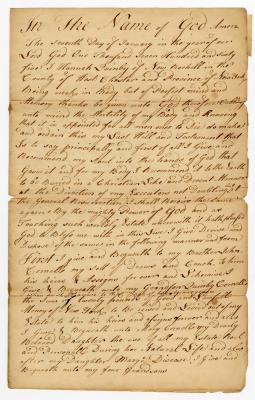 In The Name of God Amen
The Seventh Day of January in the year of our
Lord God One Thousand Seven Hundred and Sixty
two I Hannah Quimby of New Rochell in the
County of West Chester and Province of New York
Being weak in Body but of Perfect mind and
Memory thanks be given unto God therefore Calling
unto mind the Mortality of my Body and Knowing
that it is appointed for all men once to Die do make
and ordain this my Last Will and Testament that
is to say principally and first of all I Give and
Recommend my Soul into the hands of God that
Gave it and for my Body I Recommend it to the Earth
to be Buried in a Christian Like and Decent Manner
at the Discretion of my Executors not Doubting but at
the General Resurrection I Shall Receive the Same
again By the mighty Power of God and as
Touching such worldly Estate wherewith it hath pleased
God to Bless me with in this Life I Give Devise and
Dispose of the same in the following manner and form
First I give and Bequeath to my Brother John
Cornells my
his heirs & Assigns for ever and Likewise I
Give & Bequeath unto my Grandson Quimby Cornells
the Sum of twenty pounds
Money of New York to be
Estate to him his heirs and assigns forever and also
I Give & Bequeath unto Mary Cornells my Dearly
Beloved Daughter the use of all my Estate Real
and Personall During her Natural Life and also
after my Daughter Marys Disease I Give and
Bequeath unto my four Grandsons